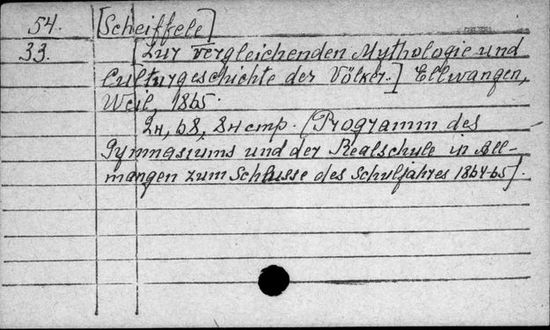 54. [Scheiffele]
33. [Zur vergleichenden Mythologie und
Culturgeschichte der Völker.] Ellwangen,
Weil, 1865.
68, (Programm des
Gymnasiums und der Realschule in Ell-
wangen zum Schlusse des Schuljahres 1864-65).